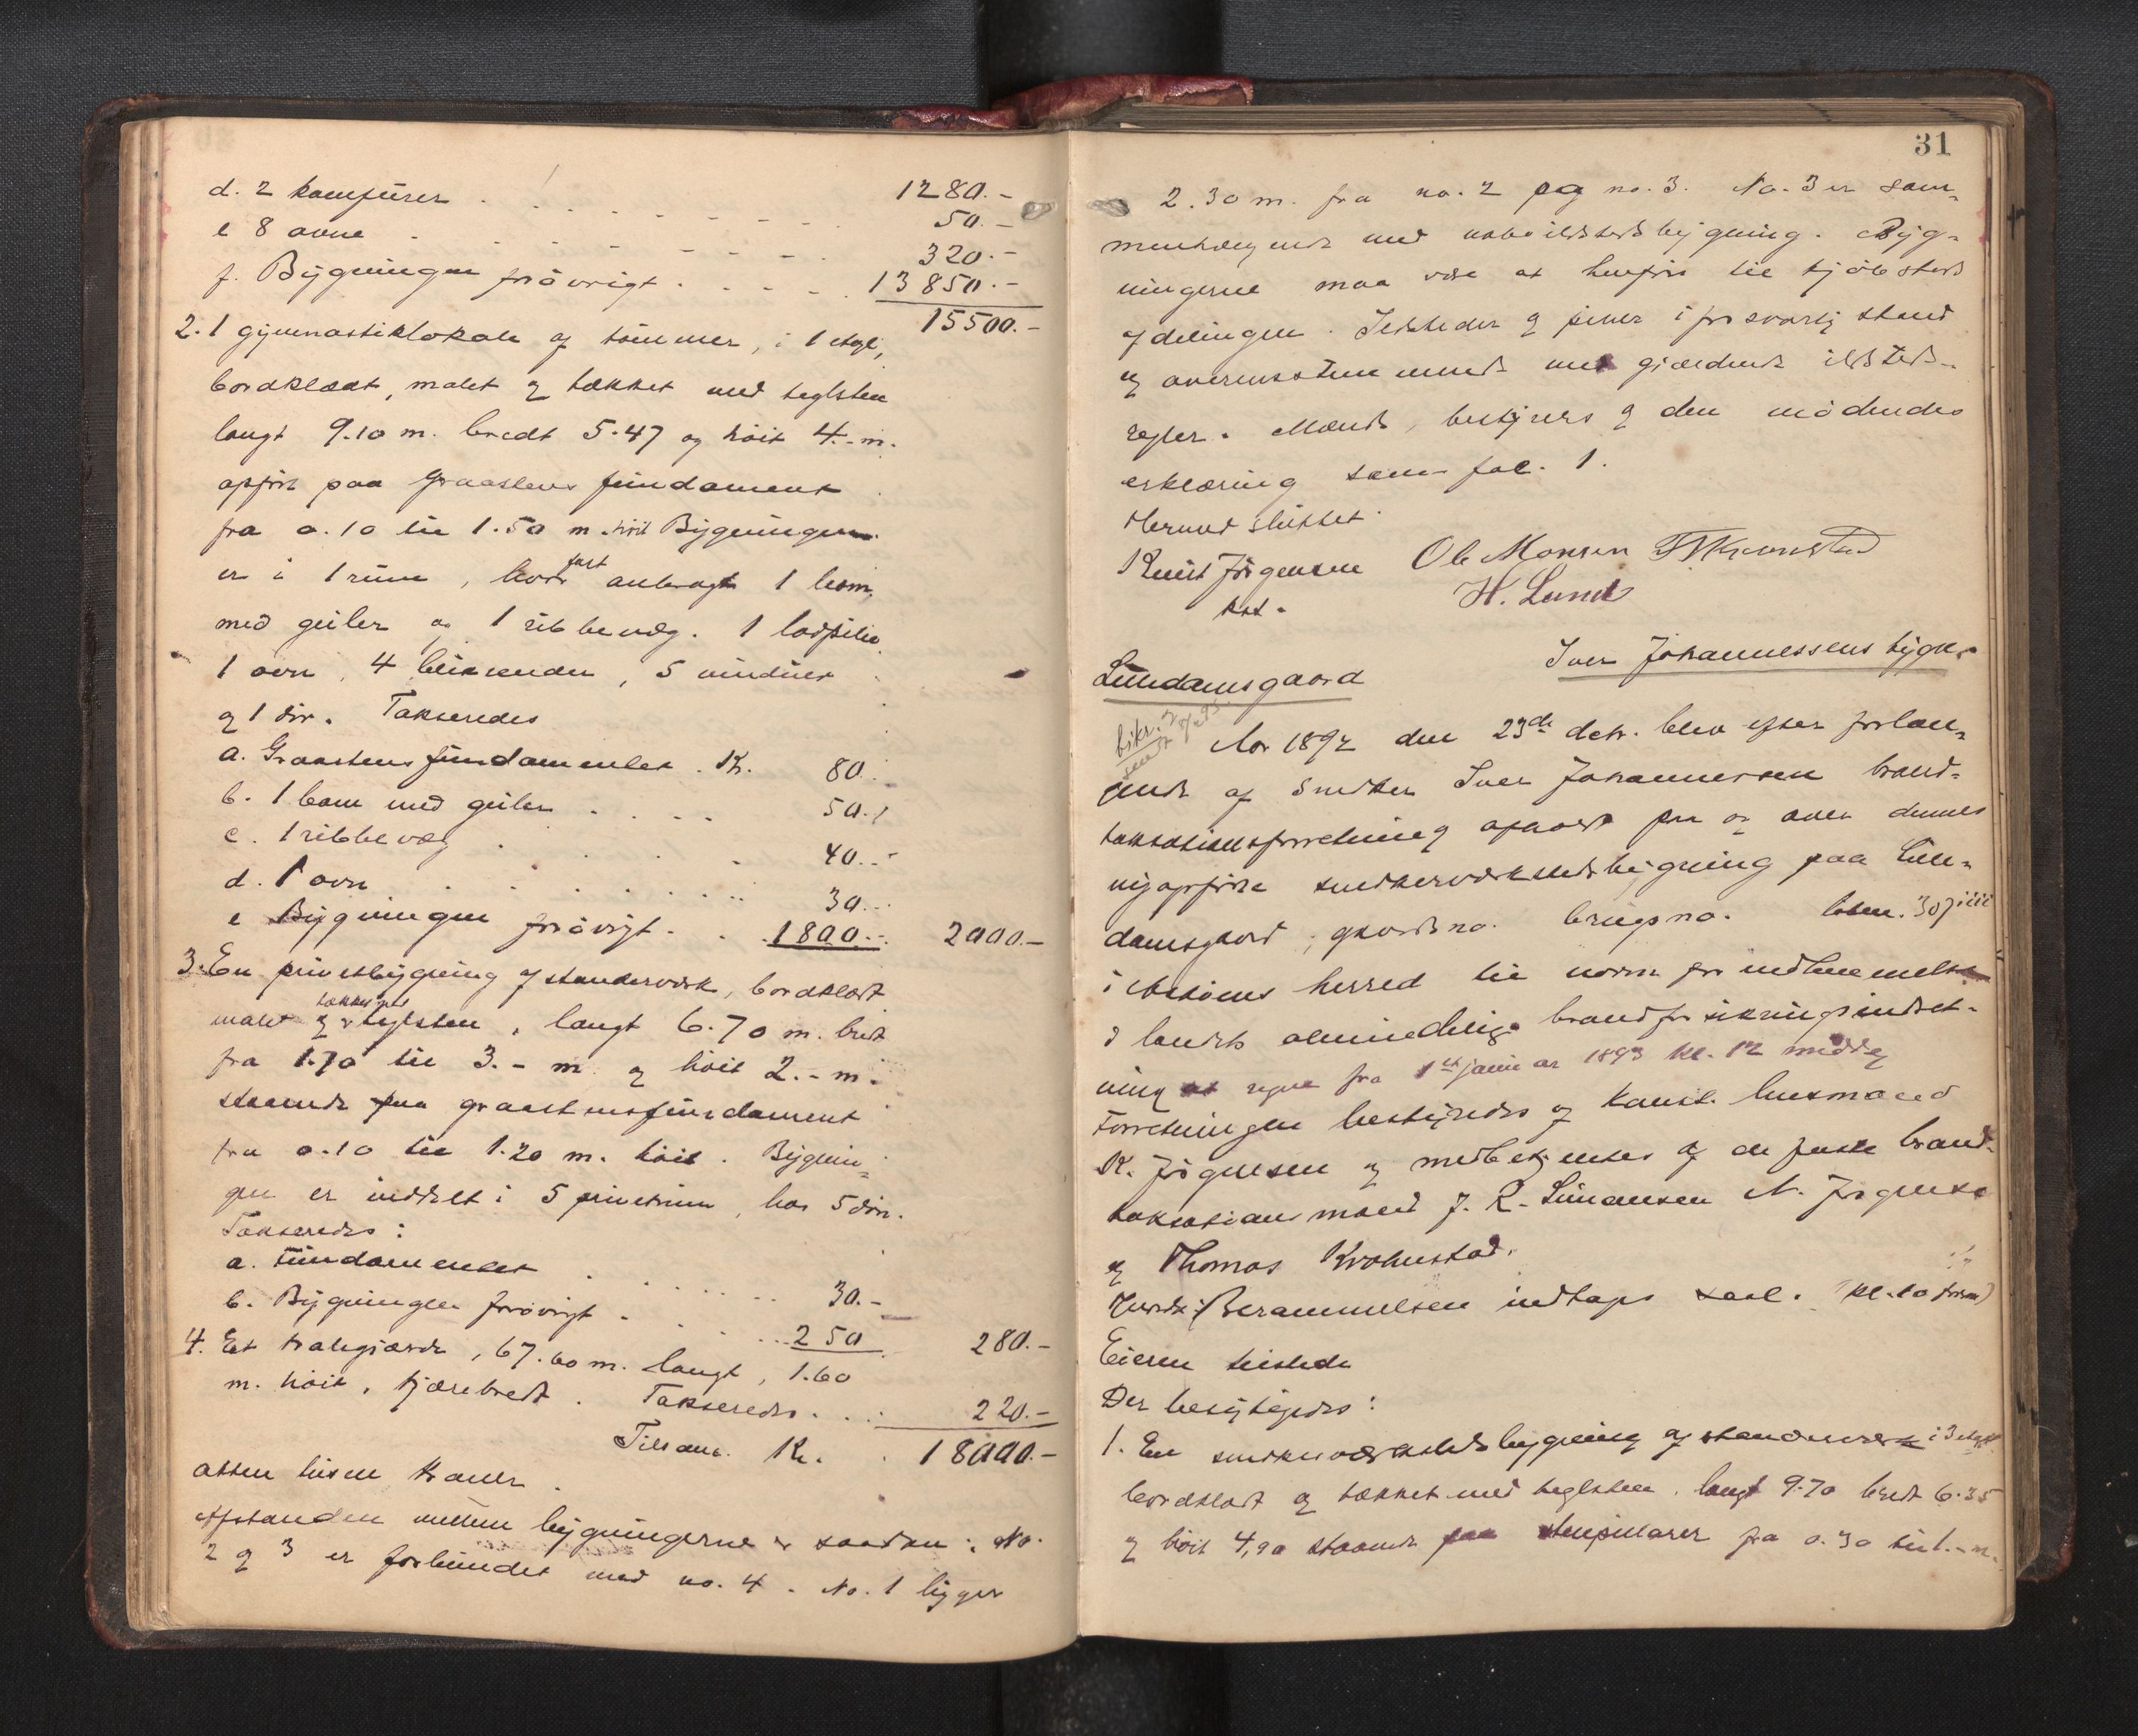 1280.-
d. 2 komfürer . . . . . 50.-
e 8 ovne . . . . . 320.-
f. Bygningen forøvrigt . . . . 13850.-
15500.-
2. 1 gymnastiklokale af tømmer, i 1 etage,
bordklædt, malet og tækket med teglsten
langt 9.10 m. bredt 5.47 og høit 4.- m.
opført paa graastens fundament
fra 0.10 til 1.50 m. høit Bygningen
er i 1 rum, hvor fast anbragt 1 bom
med geiler og 1 ribbevæg. 1
1 ovn, 4 , 5 vinduer
og 1 dør. Takseredes
a. Graastens fundamentet . Kr. 80.-
b. 1 bom med geiler . . . . 50.-
c. 1 ribbevæg . . . . 40.-
d. 1 ovn . . . . . 30.-
e Bygningen forøvrigt . . 1800.- 2000.-
3. En privetbygning af standerværk, bordklædt
malet og tækket med teglsten, langt 6.70 m. bredt
fra 1.70 til 3.- m. og høit 2.- m.
staaende paa graastensfundament
fra 0.10 til 1.20 m. høit. Bygnin-
gen er inddelt i 5 privetrum, har 5 dør.
Takseredes:
a. Fundamentet . . . . 30.-
b. Bygningen forøvrigt . . . . 250 280.-
4. Et gjærde, 67.60 m. langt, 1.60
m. høit, tjærebredt. Takseredes . . . 220.-
Tilsam. Kr. . 18000.-
atten tusen kroner.
Afstanden mellem bygningerne er saadan: No.
2 og 3 er forbundet med no. 4. No. 1 ligger
31
2.30 m. fra no. 2 og no. 3. No. 3 er sam-
menhængende med bygning. Byg-
ningerne maa være at henføre til kjøbsteds
afdelingen. Ildsteder og piber i forsvarlig stand
og overensstemmende med gjældende ildsteds-
regler. Mænds, bestyrers og den mødendes
erklæring som fol. 1.
Hermed sluttet.
Knut Jørgensen Ole Monsen T. Kronstad
kst. H. Lund
Iver Johannessens bygn.
Lundamsgaard
Aar 1892 den 23de detr. blev efter forlan-
gende af snedker Iver Johannessen brand-
taksationsforretning afholdt paa og over dennes
nyopførte snedkerværkstedsbygning paa Lun-
damsgaard, gaardsno. brugsno. 307
i herred til norm for indlemmelse
i landets almindelige brandforsikringsindret-
ning at regne fra 1ste januar 1893 kl. 12 middag
Forretningen bestyredes af konst. lensmand
K. Jørgensen og medbetjentes af de faste brand-
taksationsmænd J. R. Simonsen N. Jørgensen
og Thomas Krohnstad.
Berammelsen indtages saal. (kl. 10 form)
Eieren tilstede
Der besigtigedes:
1. En snedkerværkstedsbygning af standerværk i 3 etage
bordklædt og tækket med teglsten, langt 9.70 bredt 6.35
og høit 4,90 staaende paa stenpillarer fra 0.30 til 1.- m.